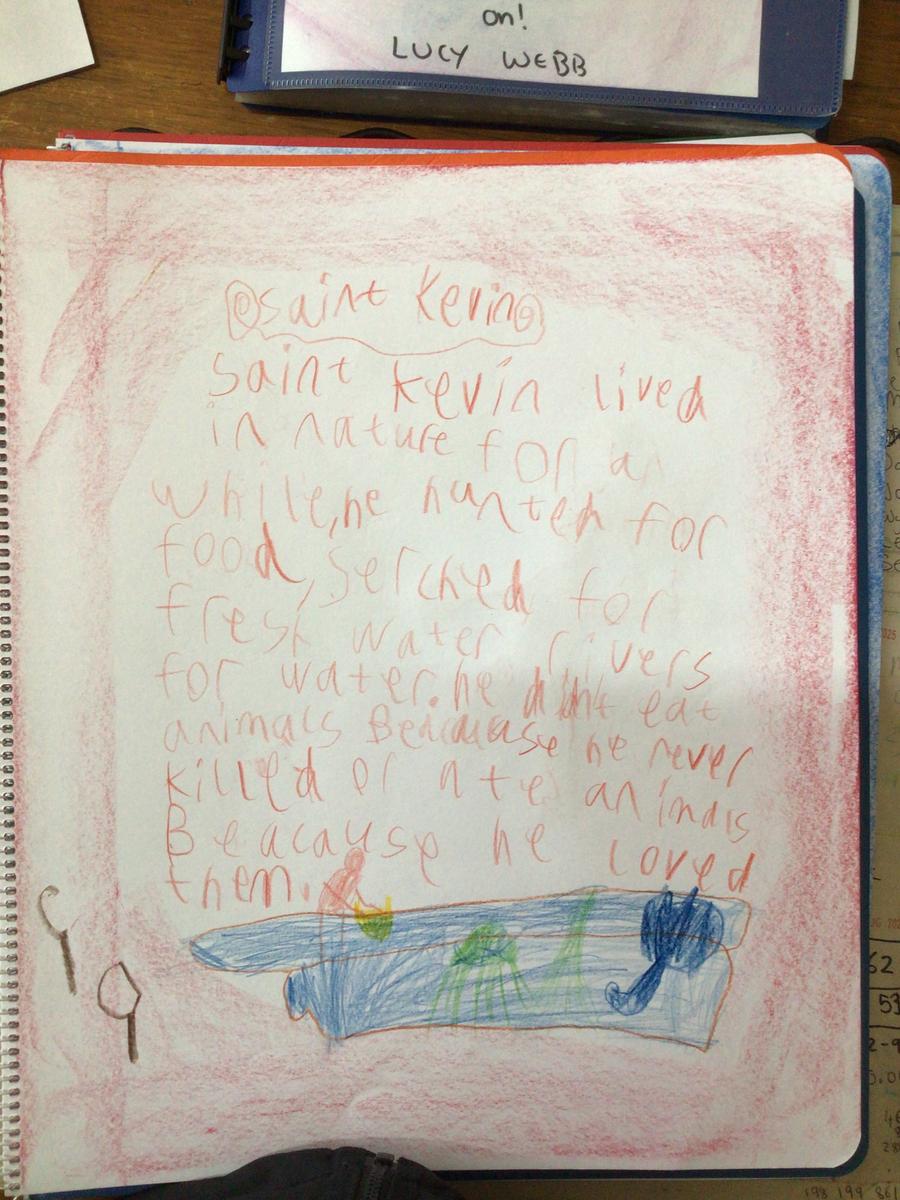 on!
LUCY WEBB
Saint Kevin
Saint Kevin lived
in nature for a
while, he hunted for
food, serched for
fresh water rivers
for water. he didn't eat
animals Beacause he never
killed or ate animals
Beacause he loved
them.
62
53